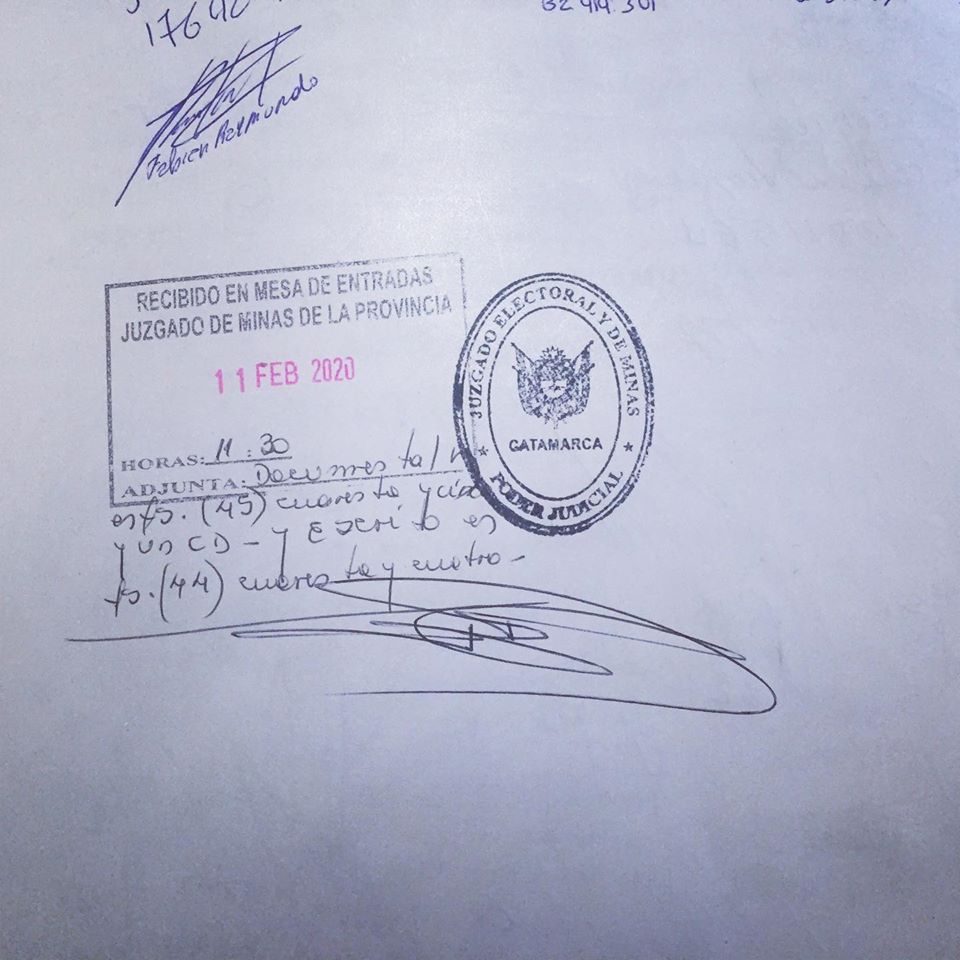 32 414 301
Fabian Raymundo
RECIBIDO EN MESA DE ENTRADAS
JUZGADO DE MINAS DE LA PROVINCIA
11 FEB 2020
HORAS: 11:30
ADJUNTA: Documental
en fs. (45) cuarenta y
y un CD - y Escrito en
fs. (44) cuarenta y cuatro -
JUZGADO ELECTORAL Y DE MINAS
CATAMARCA
PODER JUDICIAL